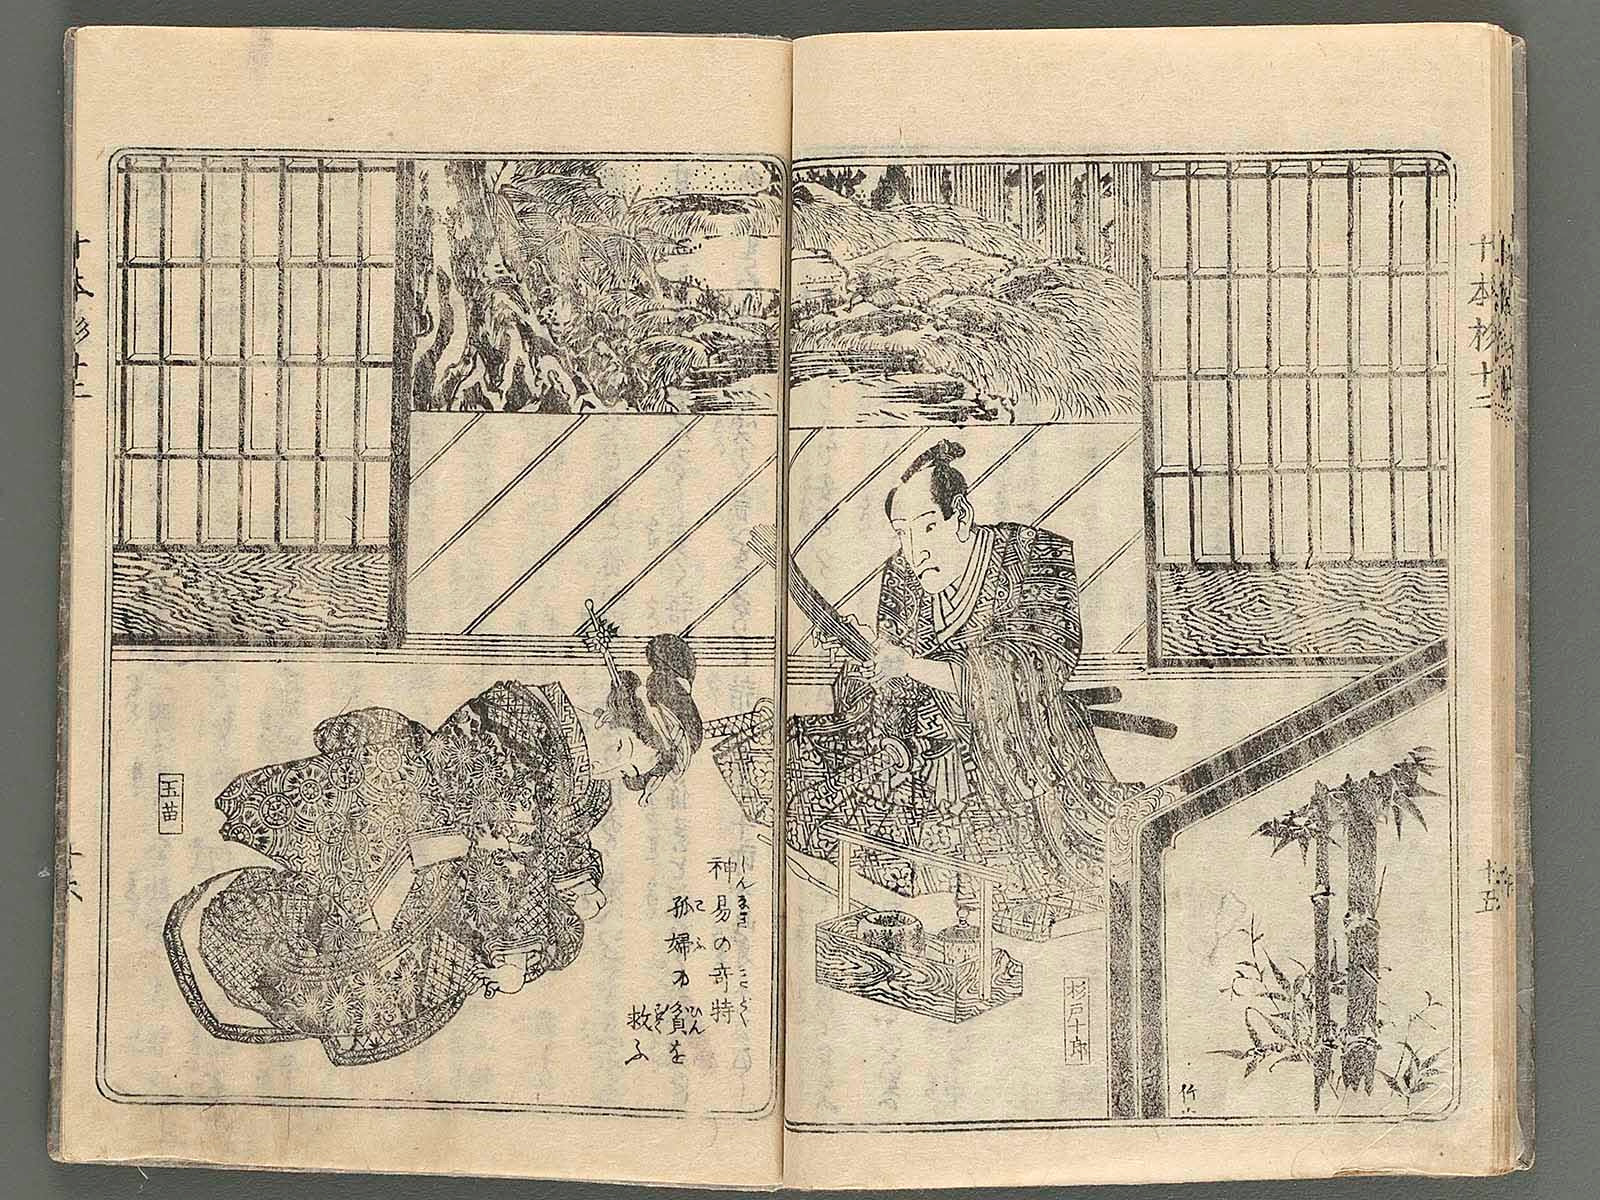 十本杉十二
十五
杉戸十郎
竹
神易の奇特
孤婦の貧を
救ふ
玉苗
十本杉十二
十六